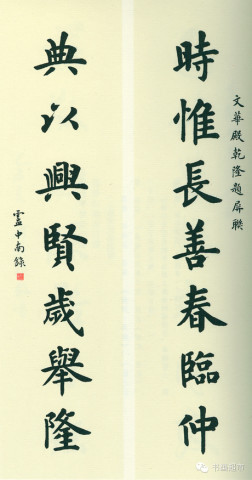 文華殿乾隆題屏聯
時惟長善春臨仲
典以興賢歲舉隆
盂中南錄
书画超市